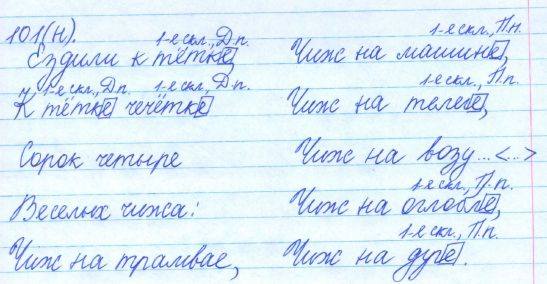 101(н).
1-е скл., Д.п.
Ездили к тётке,
1-е скл., Д.п. 1-е скл., Д.п.
К тётке чечётке
Сорок четыре
Веселых чижа:
Чиж на трамвае,
1-е скл., П.п.
Чиж на машине,
1-е скл., П.п.
Чиж на телеге,
Чиж на возу...<...>
1-е скл., П.п.
Чиж на оглобле,
1-е скл., П.п.
Чиж на дуге.